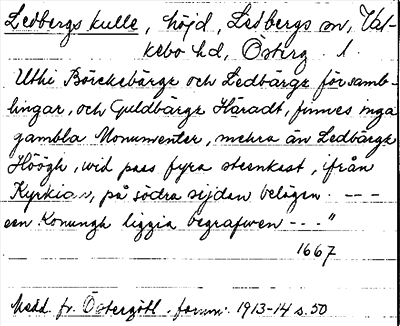 Ledbergs kulle, höjd, Ledbergs sn, Val-
kebo hd, Österg. l.
Uthi Börckebärgz och Ledbärgz församb-
lingar, och Guldbärgz Häradt, finnes inga
gambla Monumenter, mehra än Ledbärgz
Höögh, wid pass fyra steenkast, ifrån
Kyrkian, på södra sijdan belägen. ---
een Konungh liggia begrafwen ---"
1667
Medd. fr. Östergötl. fornm. 1913-14 s. 50